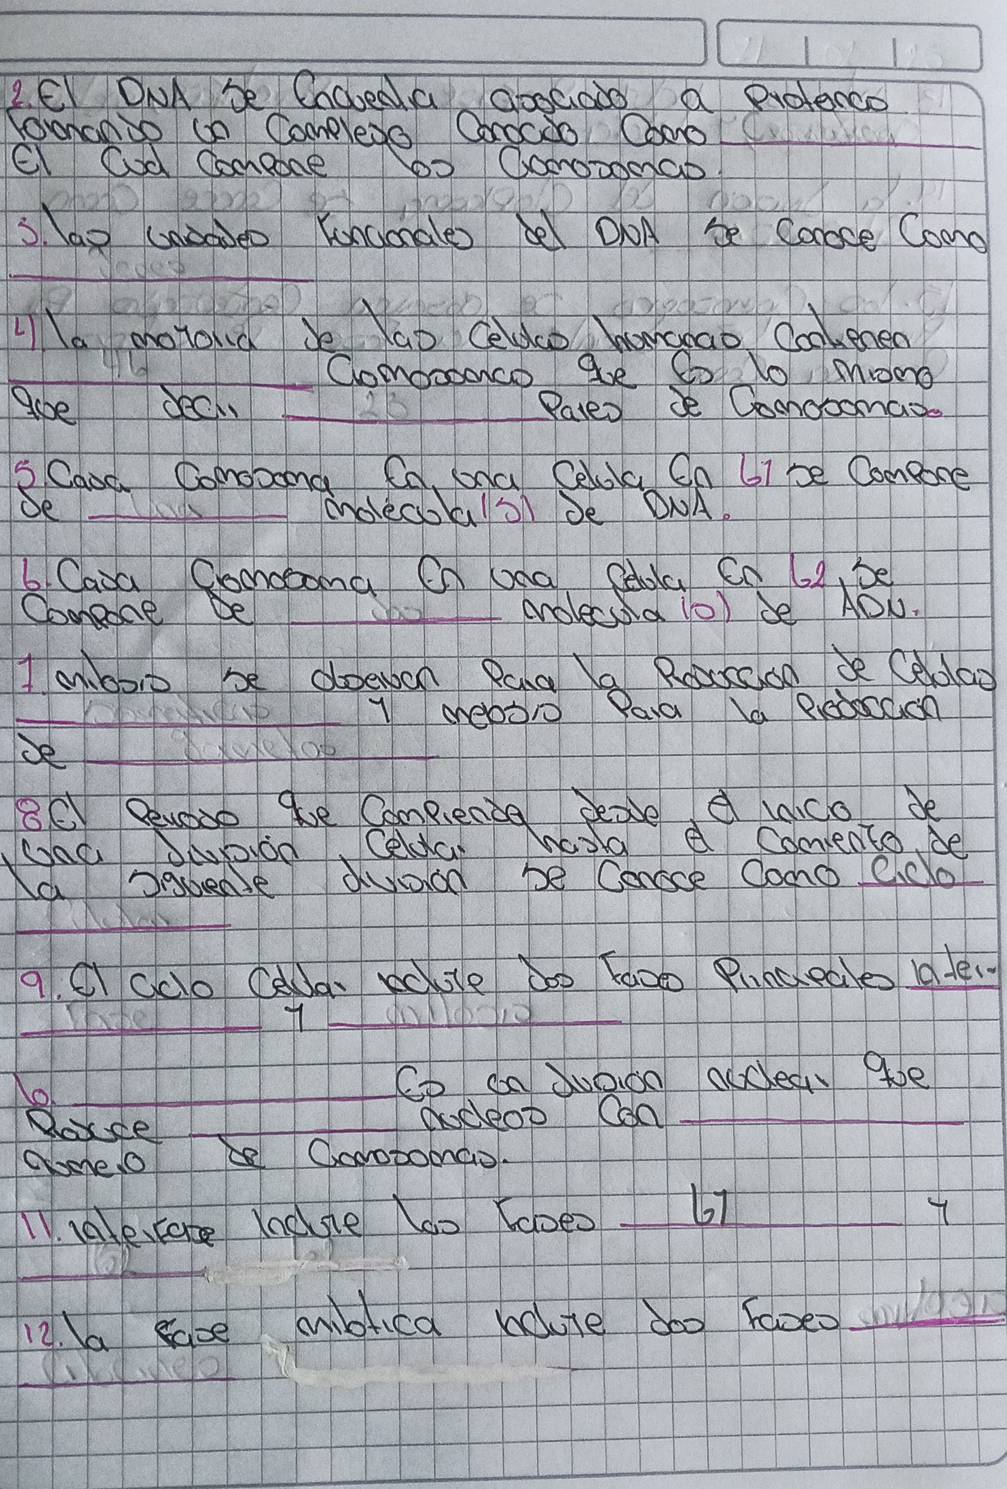 2. El DNA se encuentra asociado a Proteinas
Formando un Complejo Conocido Como
El Cual Compone los Cromosomas.
3. las unidades Funcionales del DNA se Conoce Como
Genes
4) la mayoria de las Celulas humanas Contienen
46 Cromosomas que Es lo mismo
que decir 23 Pares de Cromosomas
5. Cada Cromosoma En una Celula En G1 se Compone
de molecula(s) de DNA.
6. Cada Cromosoma En una Celula En G2, se
Compone de molecula(s) de ADN.
7. mitosis se observan Para la Produccion de Celulas
y meiosis Para la Produccion
de gametos
8 El Periodo que Comprende desde el inicio de
una division Celular hasta el Comiento de
la siguiente division se Conoce Como Ciclo
Celular
9. El Ciclo Celular incluye dos Fases Principales inter-
Fase y mitosis
10. Es un division nuclear que
Produce nucleos Con
numero de Cromosomas.
11. interfase incluye las Fases G1 y
G2
12. la Fase mitotica incluye dos Fases